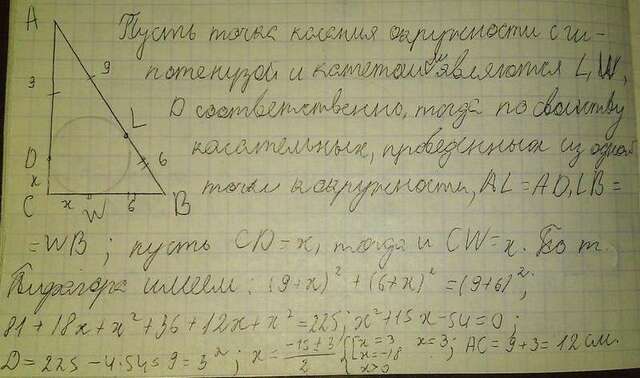 A
Пусть точка касания окружности с ги-
9
потенузой и катетами являются L, W,
3
D соответственно, тогда по свойству
L
касательных, проведенных из одной
D
6
x
точки к окружности, AL = AD, LB =
C
x
W
6
B
= WB; пусть CD = x, тогда и CW = x. По т.
Пифагора имеем: (9+x)² + (6+x)² = (9+6)²;
81 + 18x + x² + 36 + 12x + x² = 225; x² + 15x - 54 = 0;
D = 225 - 4·54 = 9 = 3²; x = -15 ± 3 / 2 { x = 3 x = -18 x > 0 x = 3; AC = 9 + 3 = 12 см.